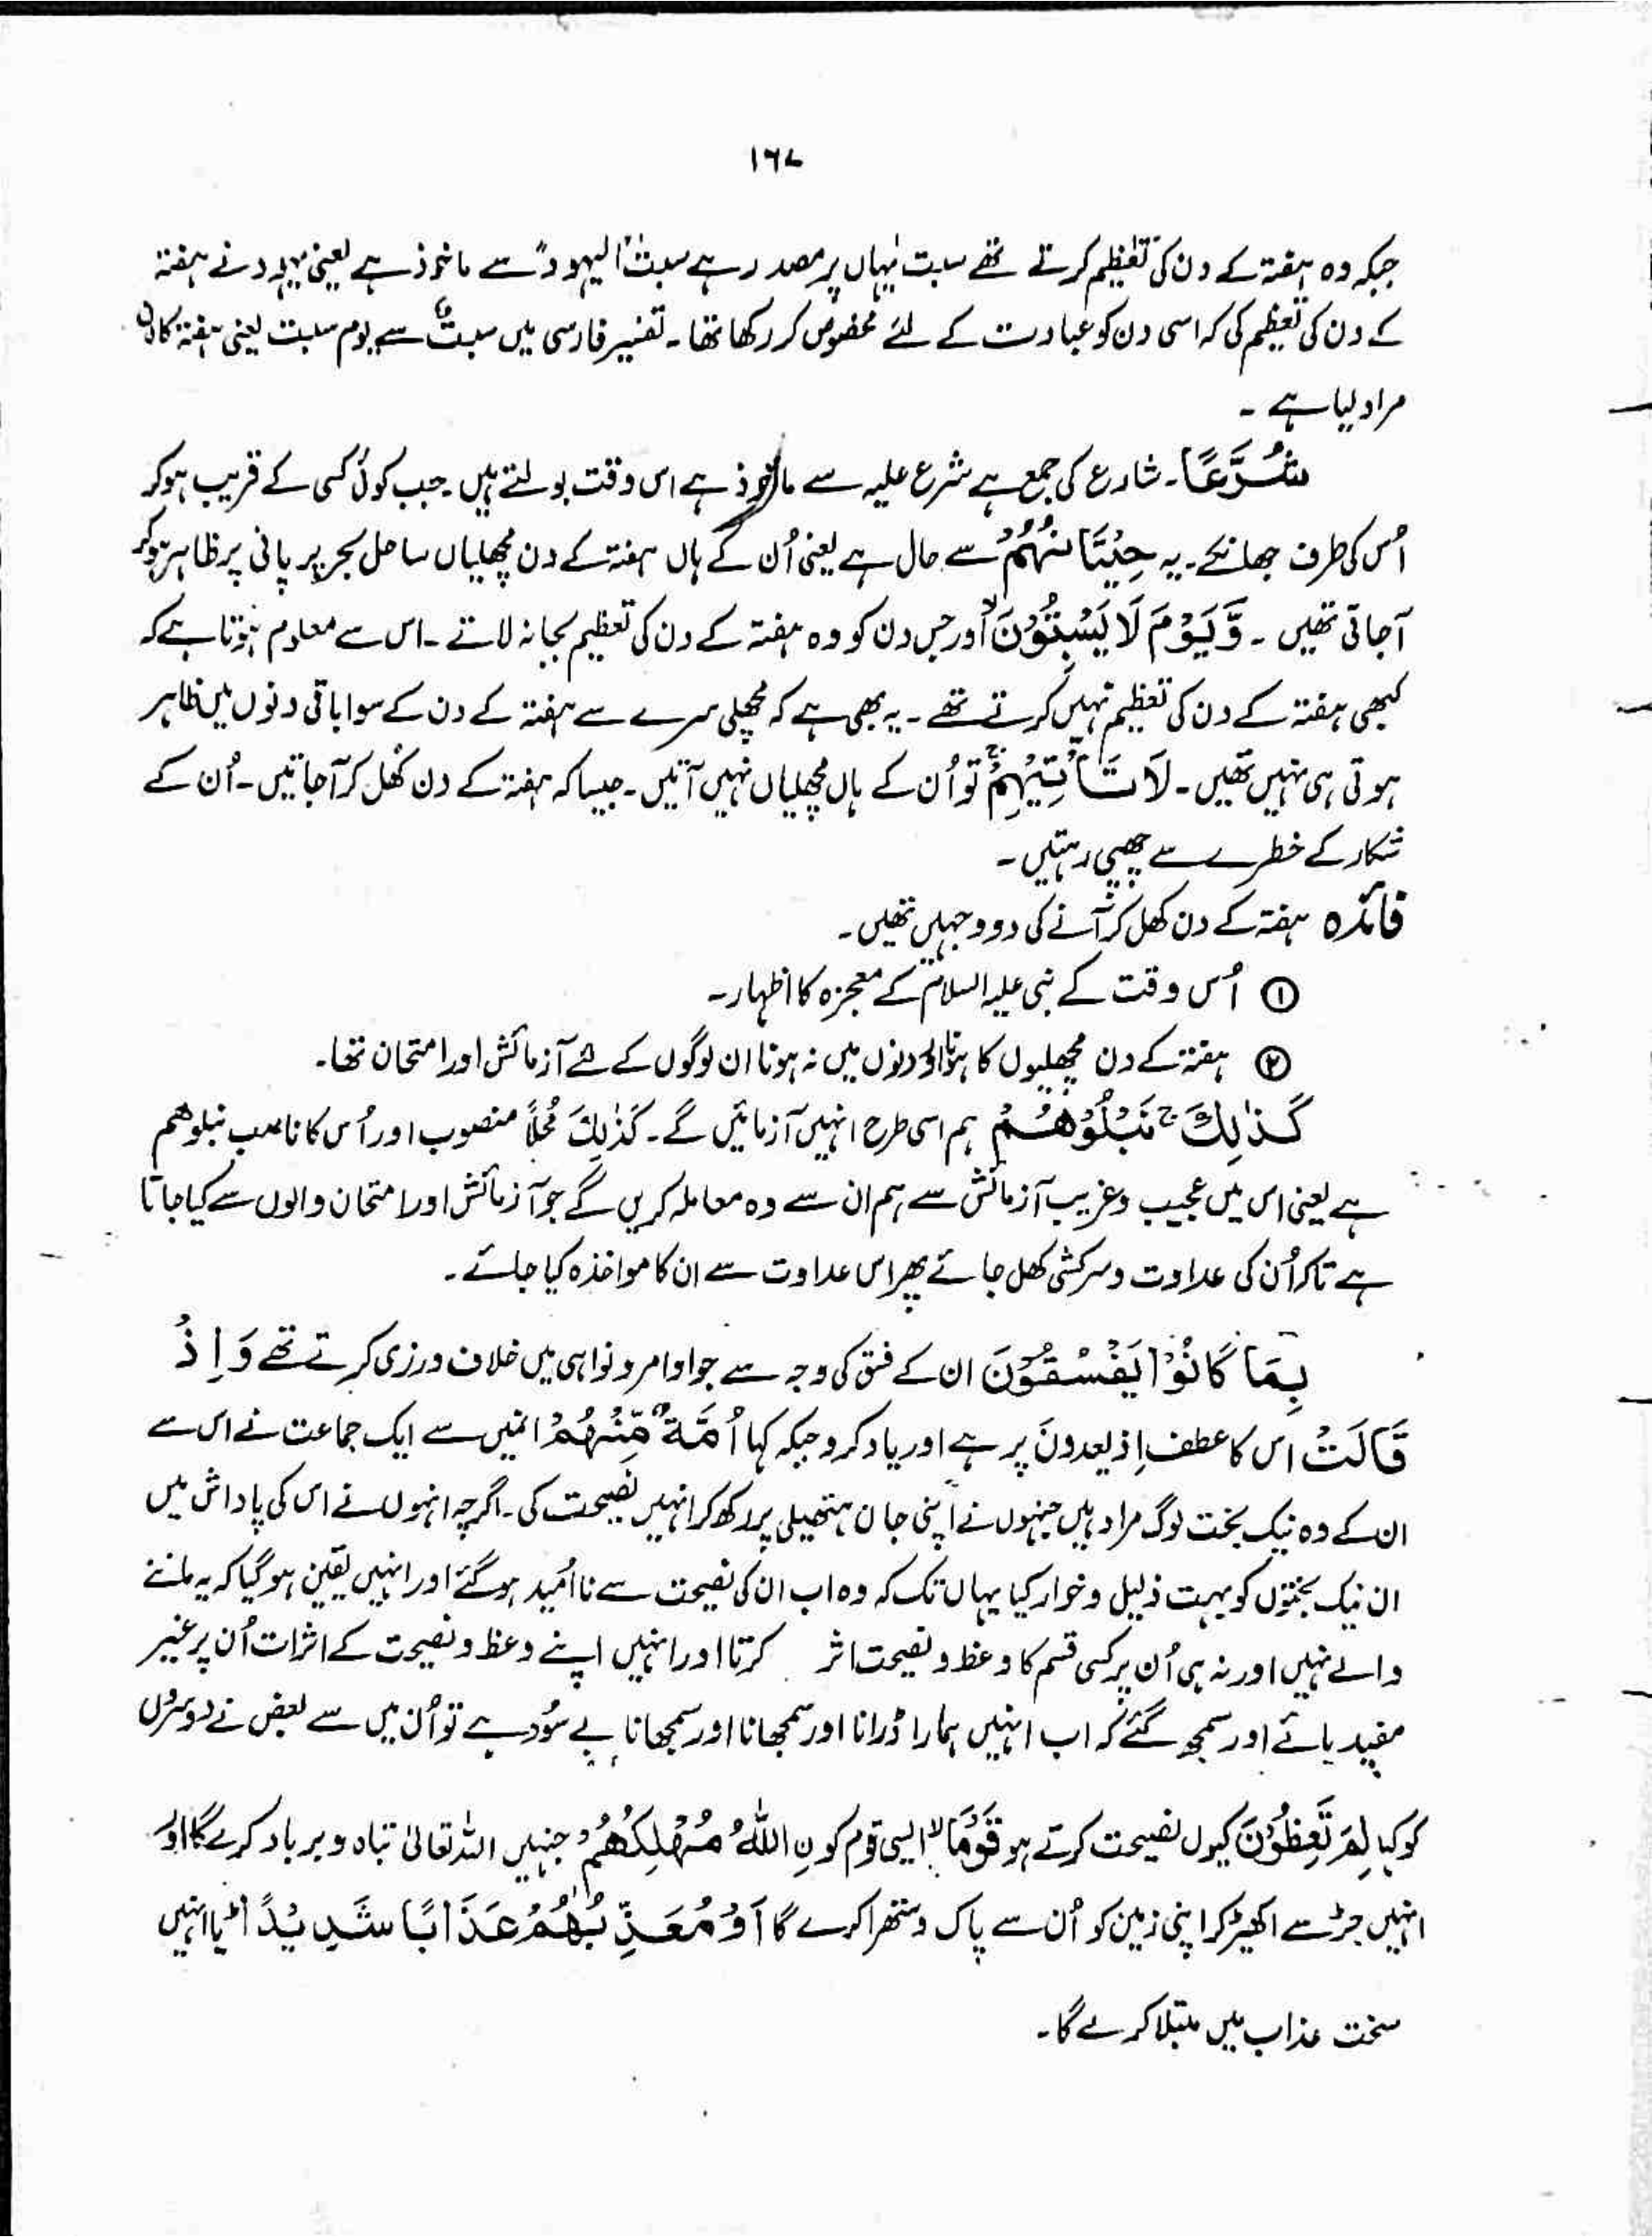 ۱۶۷
جبکہ وہ ہفتہ کے دن کی تعظیم کرتے تھے سبت یہاں پر مصدر ہے سبت الیہود سے ماخوذ ہے یعنی یہود نے ہفتہ
کے دن کی تعظیم کی کہ اسی دن کو عبادت کے لئے مخصوص کر رکھا تھا۔ تفسیر فارسی میں سبت سے یوم سبت یعنی ہفتہ کا دن
مراد لیا ہے ۔
شُرَّعًا۔ شارع کی جمع ہے شرع علیہ سے ماخوذ ہے اس وقت بولتے ہیں۔ جب کوئی کسی کے قریب ہوکر
اُس کی طرف جھانکے۔ یہ حِیْتَانُہُمْ سے حال ہے یعنی اُن کے ہاں ہفتہ کے دن مچھلیاں ساحل بحر پر پانی پر ظاہر ہوکر
آجاتی تھیں ۔ وَّیَوْمَ لَا یَسْبِتُوْنَ ۙ اور جس دن کو وہ ہفتہ کے دن کی تعظیم بجا نہ لاتے ۔ اس سے معلوم ہوتا ہے کہ
کبھی ہفتہ کے دن کی تعظیم نہیں کرتے تھے ۔ یہ بھی ہے کہ مچھلی سرے سے ہفتہ کے دن کے سوا باقی دنوں میں ظاہر
ہوتی ہی نہیں تھیں ۔ لَا تَاْتِیْہِمْ ۚ تو اُن کے ہاں مچھلیاں نہیں آتیں ۔ جیسا کہ ہفتہ کے دن کُھل کر آجاتیں ۔ اُن کے
شکار کے خطرے سے چھپی رہتیں ۔
فائدہ ہفتہ کے دن کھل کر آنے کی دو وجہیں تھیں ۔
① اُس وقت کے نبی علیہ السلام کے معجزہ کا اظہار ۔
② ہفتہ کے دن مچھلیوں کا ہونا اور دنوں میں نہ ہونا ان لوگوں کے لئے آزمائش اور امتحان تھا ۔
کَذٰلِکَ ۚ نَبْلُوْھُمْ ہم اسی طرح انہیں آزمائیں گے ۔ کَذٰلِکَ مُحلاً منصوب اور اُس کا ناصب نبلوھم
ہے یعنی اس میں عجیب وغریب آزمائش سے ہم ان سے وہ معاملہ کریں گے جو آزمائش اور امتحان والوں سے کیا جاتا
ہے تاکہ اُن کی عداوت وسرکشی کھل جائے پھر اس عداوت سے ان کا مواخذہ کیا جائے ۔
بِمَا کَانُوْا یَفْسُقُوْنَ ان کے فسق کی وجہ سے جو اوامر و نواہی میں خلاف ورزی کرتے تھے وَ اِذْ
قَالَتْ اس کا عطف اِذ یعدونَ پر ہے اور یاد کرو جبکہ کہا اُمَّۃٌ مِّنْہُمْ انمیں سے ایک جماعت نے اس سے
ان کے وہ نیک بخت لوگ مراد ہیں جنہوں نے اپنی جان ہتھیلی پر رکھ کر انہیں نصیحت کی ۔ اگرچہ انہوں نے اس کی پاداش میں
ان نیک بختوں کو بہت ذلیل و خوار کیا یہاں تک کہ وہ اب ان کی نصیحت سے نا اُمید ہوگئے اور انہیں یقین ہو گیا کہ یہ ماننے
والے نہیں اور نہ ہی اُن پر کسی قسم کا وعظ و نصیحت اثر کرتا اور انہیں اپنے وعظ و نصیحت کے اثرات اُن پر غیر
مفید پائے اور سمجھ گئے کہ اب انہیں ہمارا ڈرانا اور سمجھانا اور سمجھانا بے سُود ہے تو اُن میں سے بعض نے دوسروں
کو کہا لِمَ تَعِظُوْنَ کیوں نصیحت کرتے ہو قَوْمَا ۙ ایسی قوم کو نِ اللّٰہُ مُہْلِکُھُمْ جنہیں اللہ تعالیٰ تباہ و برباد کرے گا اور
انہیں جڑ سے اکھیڑ کر اپنی زمین کو اُن سے پاک وستھرا کرے گا اَوْ مُعَذِّبُھُمْ عَذَابًا شَدِیْدًا ؕ یا انہیں
سخت عذاب میں مبتلا کرے گا ۔